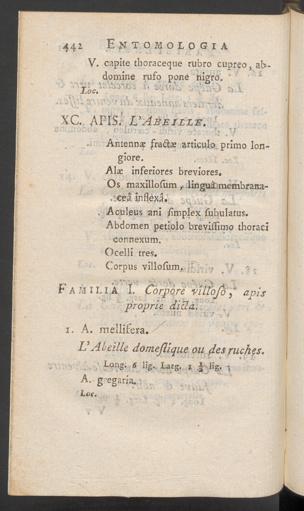 442 ENTOMOLOGIA
V. capite thoraceque rubro cupreo, ab-
domine rufo pone nigro.
Loc.
XC. APIS. L'ABEILLE.
Antennæ fractæ articulo primo lon-
giore.
Alæ inferiores breviores.
Os maxillosum, lingua membrana-
ceâ inflexâ.
Aculeus ani simplex subulatus.
Abdomen petiolo brevissimo thoraci
connexum.
Ocelli tres.
Corpus villosum.
FAMILIA I. Corpore villoso, apis
proprie dicta.
1. A. mellifera.
L'Abeille domestique ou des ruches.
Long. 6 lig. Larg. 1 ½ lig.
A. gregaria.
Loc.